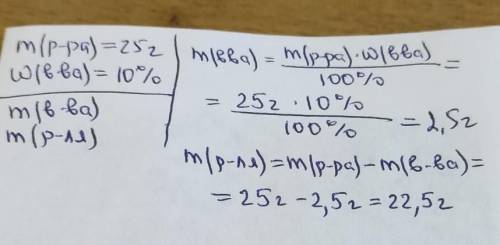 m(р-ра)=25г
W(в-ва)=10%
m(в-ва)
m(р-ля)
m(вва) = m(р-ра)·W(вва) / 100% =
= 25г · 10% / 100% = 2,5г
m(р-ля)=m(р-ра)-m(в-ва)=
= 25г - 2,5г = 22,5г